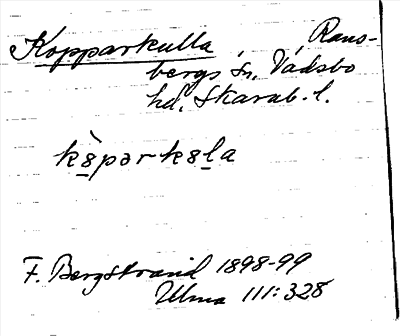 Kopparkulla Rans-
bergs sn, Vadsbo
hd, Skarab. l.
kö̀pərkөla
F. Bergstrand 1898-99
Ulma 111:328